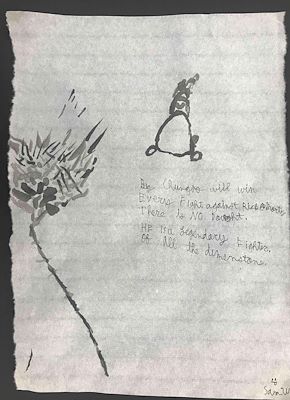 Big Chungus will win
Every Fight against Rick Astley
There is No Doubt.
He is a Legendary Fighter
Of All the dimensions.
Sam W